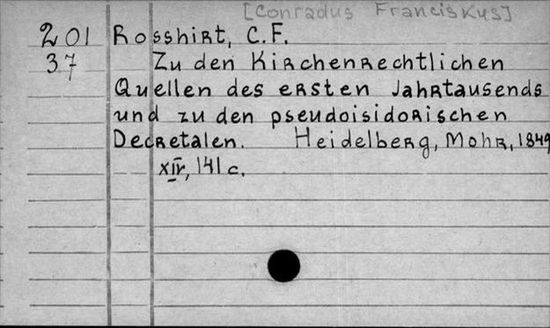 [Conradus Franciskus]
201 Rosshirt, C.F.
37 Zu den Kirchenrechtlichen
Quellen des ersten Jahrtausends
und zu den pseudoisidorischen
Decretalen. Heidelberg, Mohr, 1849
XIV, 141 c.